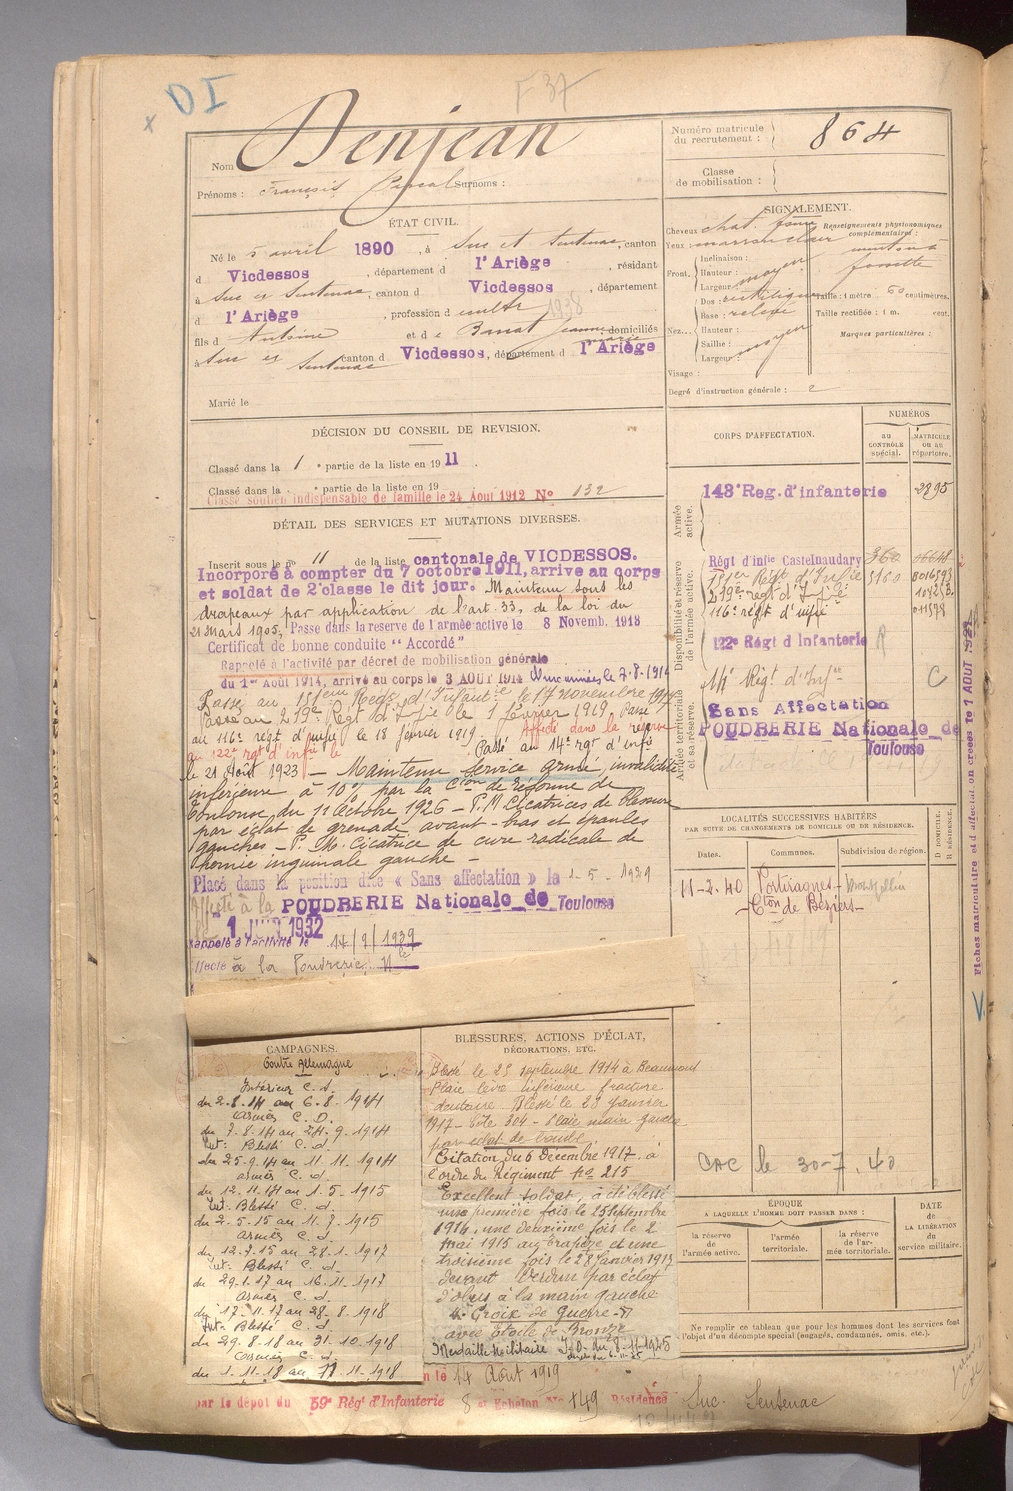 DI
F 37
Nom Denjean
Prénoms : François Pascal Surnoms :
Numéro matricule du recrutement : 864
Classe de mobilisation :
ÉTAT CIVIL.
Né le 5 avril 1890, à Suc et Sentenac, canton
d Vicdessos, département d l'Ariège, résidant
à Suc et Sentenac, canton d Vicdessos, département
d l'Ariège, profession d cultr 1938
fils d Antoine et d e Jeanne marie domiciliés
à Suc et Sentenac canton d Vicdessos, département d l'Ariège
Marié le
SIGNALEMENT.
Cheveux chat. foncé
Yeux marron clair
Renseignements physionomiques complémentaires :
menton à fossette
Front. Inclinaison :
Hauteur :
Largeur moyen
Nez. Dos : rectiligne
Base : relevé
Hauteur :
Saillie : moyen
Largeur :
Taille : 1 mètre 60 centimètres.
Taille rectifiée : 1 m. cent.
Marques particulières :
Visage :
Degré d'instruction générale : 2
DÉCISION DU CONSEIL DE REVISION.
Classé dans la 1e partie de la liste en 1911.
Classé dans la e partie de la liste en 19
Classé soutien indispensable de famille le 24 Aout 1912 No 132
DÉTAIL DES SERVICES ET MUTATIONS DIVERSES.
Inscrit sous le no 11 de la liste cantonale de VICDESSOS.
Incorporé à compter du 7 octobre 1911, arrivé au corps
et soldat de 2e classe le dit jour. Maintenu sous les
drapeaux par application de l'art. 33, de la loi du
21 Mars 1905, Passé dans la réserve de l'armée active le 8 Novemb. 1913
Certificat de bonne conduite "Accordé"
Rappelé à l'activité par décret de mobilisation générale
du 1er Août 1914, arrivé au corps le 3 AOUT 1914 Aux armées le 7-8-1914
Passé au 151eme Régt d'Infantie le 17 novembre 1914
Passé au 219e Régt d'Ifie le 1 février 1919, Passé
au 116e régt d'infie le 18 février 1919 Affecté dans la réserve
au 122e rgt d'infie le Passé au 14e rgt d'infie
le 21 Août 1923 — Maintenu Service armé, invalidité
inférieure à 10% par la Cion de réforme de
Toulouse du 11 Octobre 1926 — P.M. Cicatrices de blessure
par éclat de grenade avant-bras et épaules
gauches — P. M. Cicatrice de cure radicale de
hernie inguinale gauche —
Placé dans la position dite « Sans affectation » le 1-5-1929
Affecté à la POUDRERIE Nationale de Toulouse
1 JUIN 1932
Rappelé à l'activité le 14/9/1939
Affecté à la Poudrerie Nle
CORPS D'AFFECTATION.
NUMÉROS
au contrôle spécial.
matricule ou au répertoire.
Armée active.
143e Reg. d'infanterie 2995
Disponibilité et réserve de l'armée active.
Régt d'infie Castelnaudary 360
151er Régt d'Infie 5160 8016593
219e régt d'Ifie
116e régt d'infie 011578
122e Régt d Infanterie R
14e Régt d'Infie C
Armée territoriale et sa réserve.
Sans Affectation
POUDRERIE Nationale de
Toulouse
LOCALITÉS SUCCESSIVES HABITÉES
PAR SUITE DE CHANGEMENTS DE DOMICILE OU DE RÉSIDENCE.
Dates. Communes. Subdivision de région. D DOMICILE. R RÉSIDENCE.
11-2-40 Portiragnes Montpellier
Cton de Béziers
CAC le 30-7-40
Fiches matriculaire et d'affectation créées le 1 AOUT 1927
CAMPAGNES.
Contre Allemagne
Intérieur C. S.
du 2-8-14 au 6-8-1914
Armées C. D.
du 7-8-14 au 24-9-1914
Int: Blessé C. d.
du 25-9-14 au 11-11-1914
armées C. d.
du 12-11-14 au 1-5-1915
Int: Blessé C. d.
du 2-5-15 au 11-7-1915
armées C. d.
du 12-7-15 au 28-1-1917
Int: Blessé C. d.
du 29-1-17 au 16-11-1917
Armées C. d.
du 17-11-17 au 28-8-1918
Int: Blessé C. d.
du 29-8-18 au 31-10-1918
armées C. d.
du 1-11-18 au 11-11-1918
BLESSURES, ACTIONS D'ÉCLAT, DÉCORATIONS, ETC.
Blessé le 25 septembre 1914 à Beaumont
Plaie lèvre inférieure fracture
dentaire. Blessé le 28 janvier
1917 - Côte 304 - Plaie main gauche
par éclat de bombe.
Citation du 6 Décembre 1917. à
l'ordre du Régiment No 215
Excellent soldat, à été blessé
une première fois le 25 Septembre
1914, une deuxième fois le 2
mai 1915 au et une
troisième fois le 28 Janvier 1917
devant Verdun par éclat
d'obus à la main gauche
Croix de Guerre
avec Étoile de Bronze
Médaille Militaire J.O. du 8-11-1925
ÉPOQUE
À LAQUELLE L'HOMME DOIT PASSER DANS :
la réserve de l'armée active.
l'armée territoriale.
la réserve de l'armée territoriale.
DATE de LA LIBÉRATION du service militaire.
Ne remplir ce tableau que pour les hommes dont les services font
l'objet d'un décompte spécial (engagés, condamnés, omis, etc.).
le 14 Août 1919
par le dépôt du 59e Régt d'Infanterie 8 et Echelon No 149 Résidence Suc. Sentenac